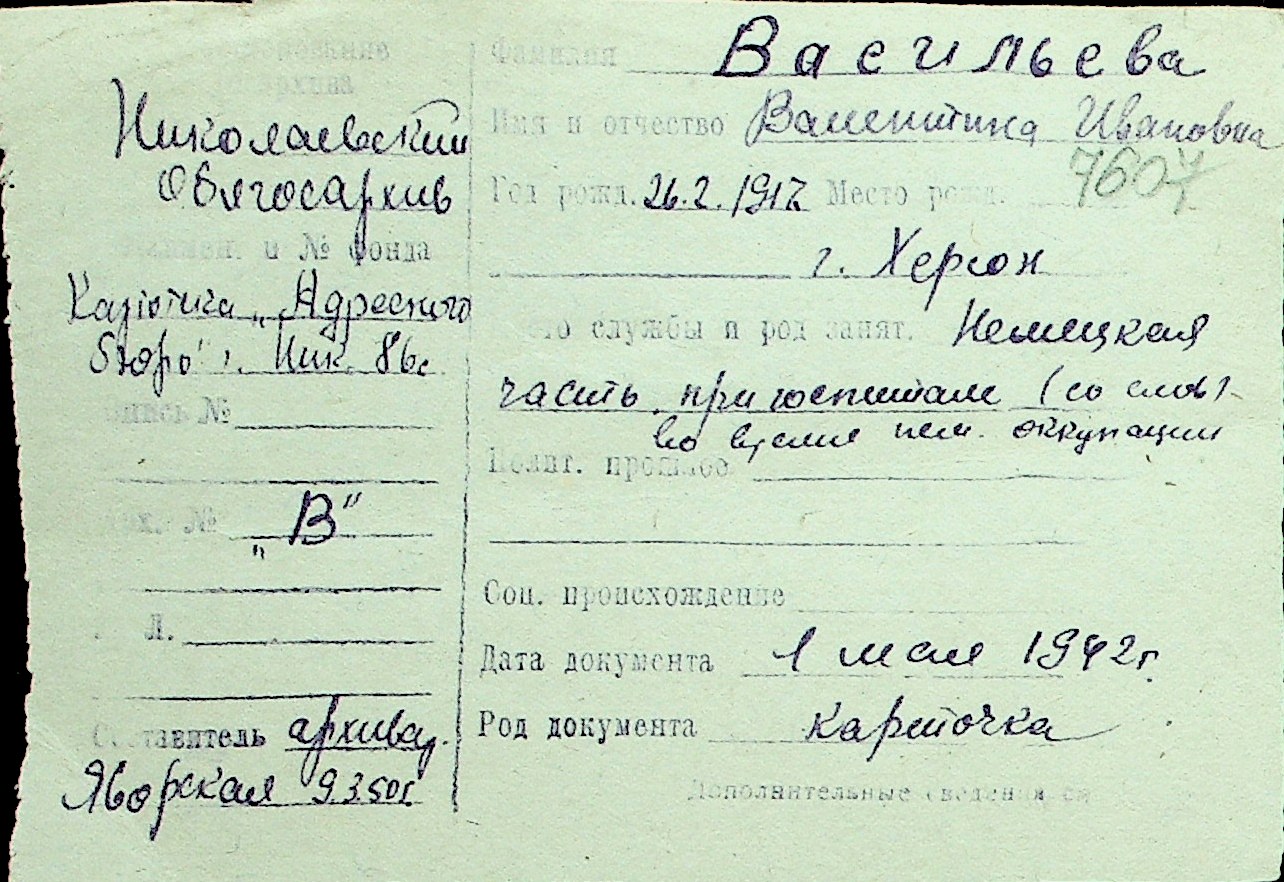 Наименование
архива
Николаевский
Облгосархив
и № фонда
Картотека „Адресного
бюро" г. Ник.
Опись №
№ „В"
Л.
Составитель архивар.
Яворская 9 3 50г
Фамилия Васильева
Имя и отчество Валентина Ивановна
7607
Год рожд. 26.2.1917 Место рожд.
г. Херсон
Место службы и род занят. Немецкая
часть при госпитале (со слов)
во время нем. оккупации
Полит. прошлое
Соц. происхождение
Дата документа 1 мая 1942г.
Род документа карточка
Дополнительные сведения